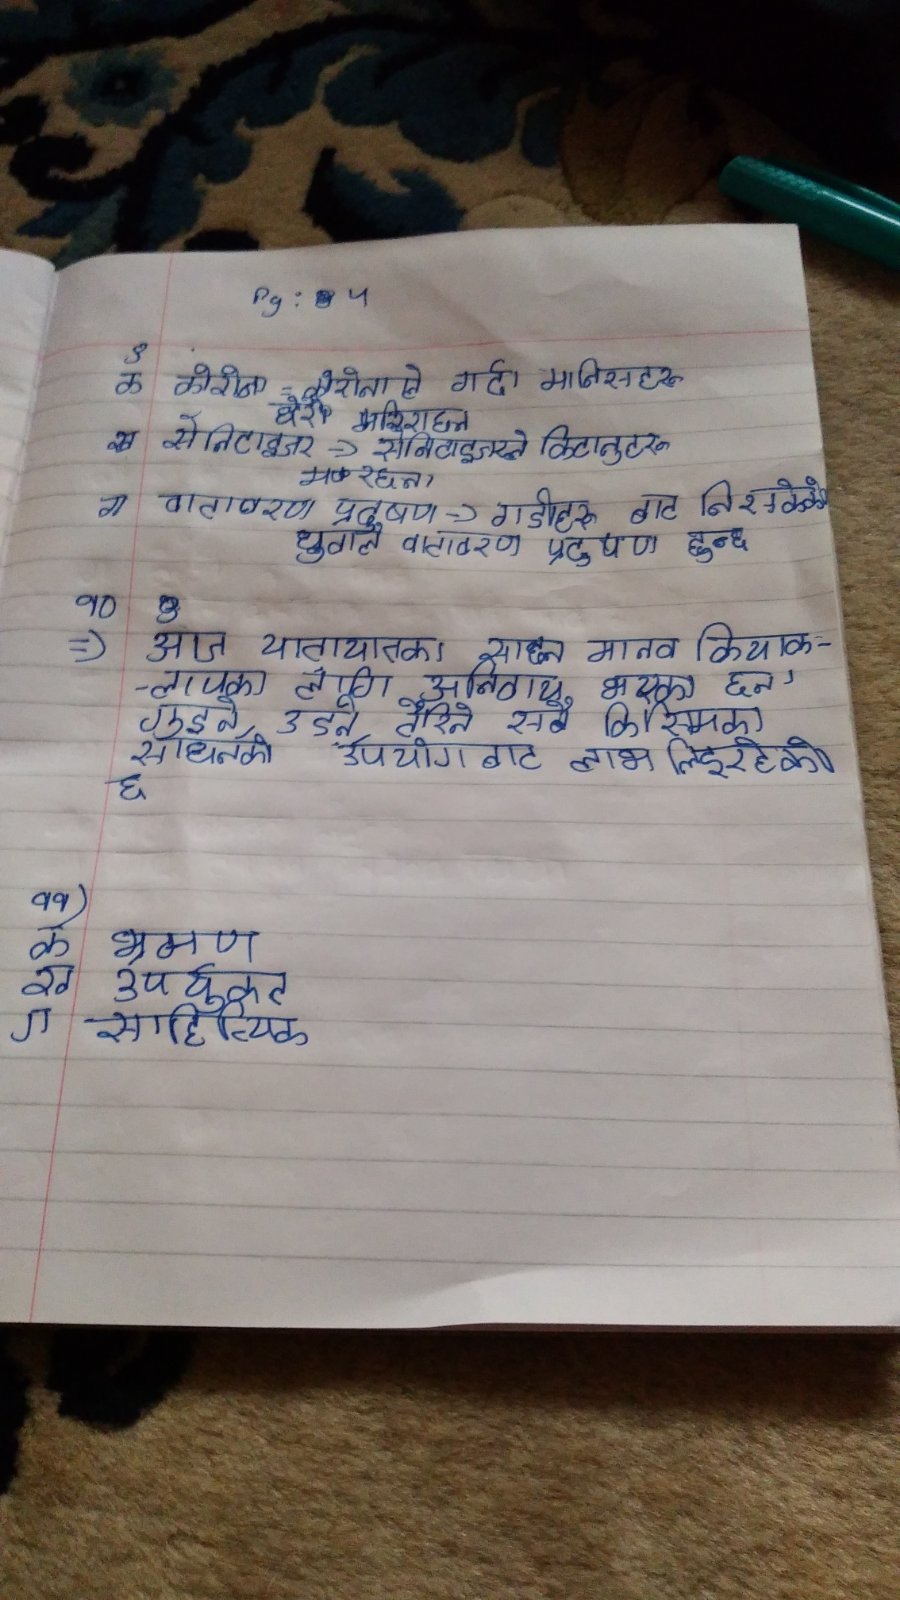 Pg: 4
९
क कोरोना = कोरोनाले गर्दा मानिसहरू
धेरै मरिराछन
ख सेनिटाइजर => सेनिटाइजरले किटानुहरू
ग वातावरण प्रदुषण => गाडीहरू बाट निस्केको
धुवाले वातावरण प्रदुषण हुन्छ
१०
=> आज यातायातका साधन मानव क्रियाक-
-लापका लागि अनिवार्य भएका छन।
गुड्ने उड्ने तैरिने सबै किसिमका
साधनको उपयोग बाट लाभ लिइरहेको
छ
११)
क भ्रमण
ख उपर्युक्त
ग साहित्यिक